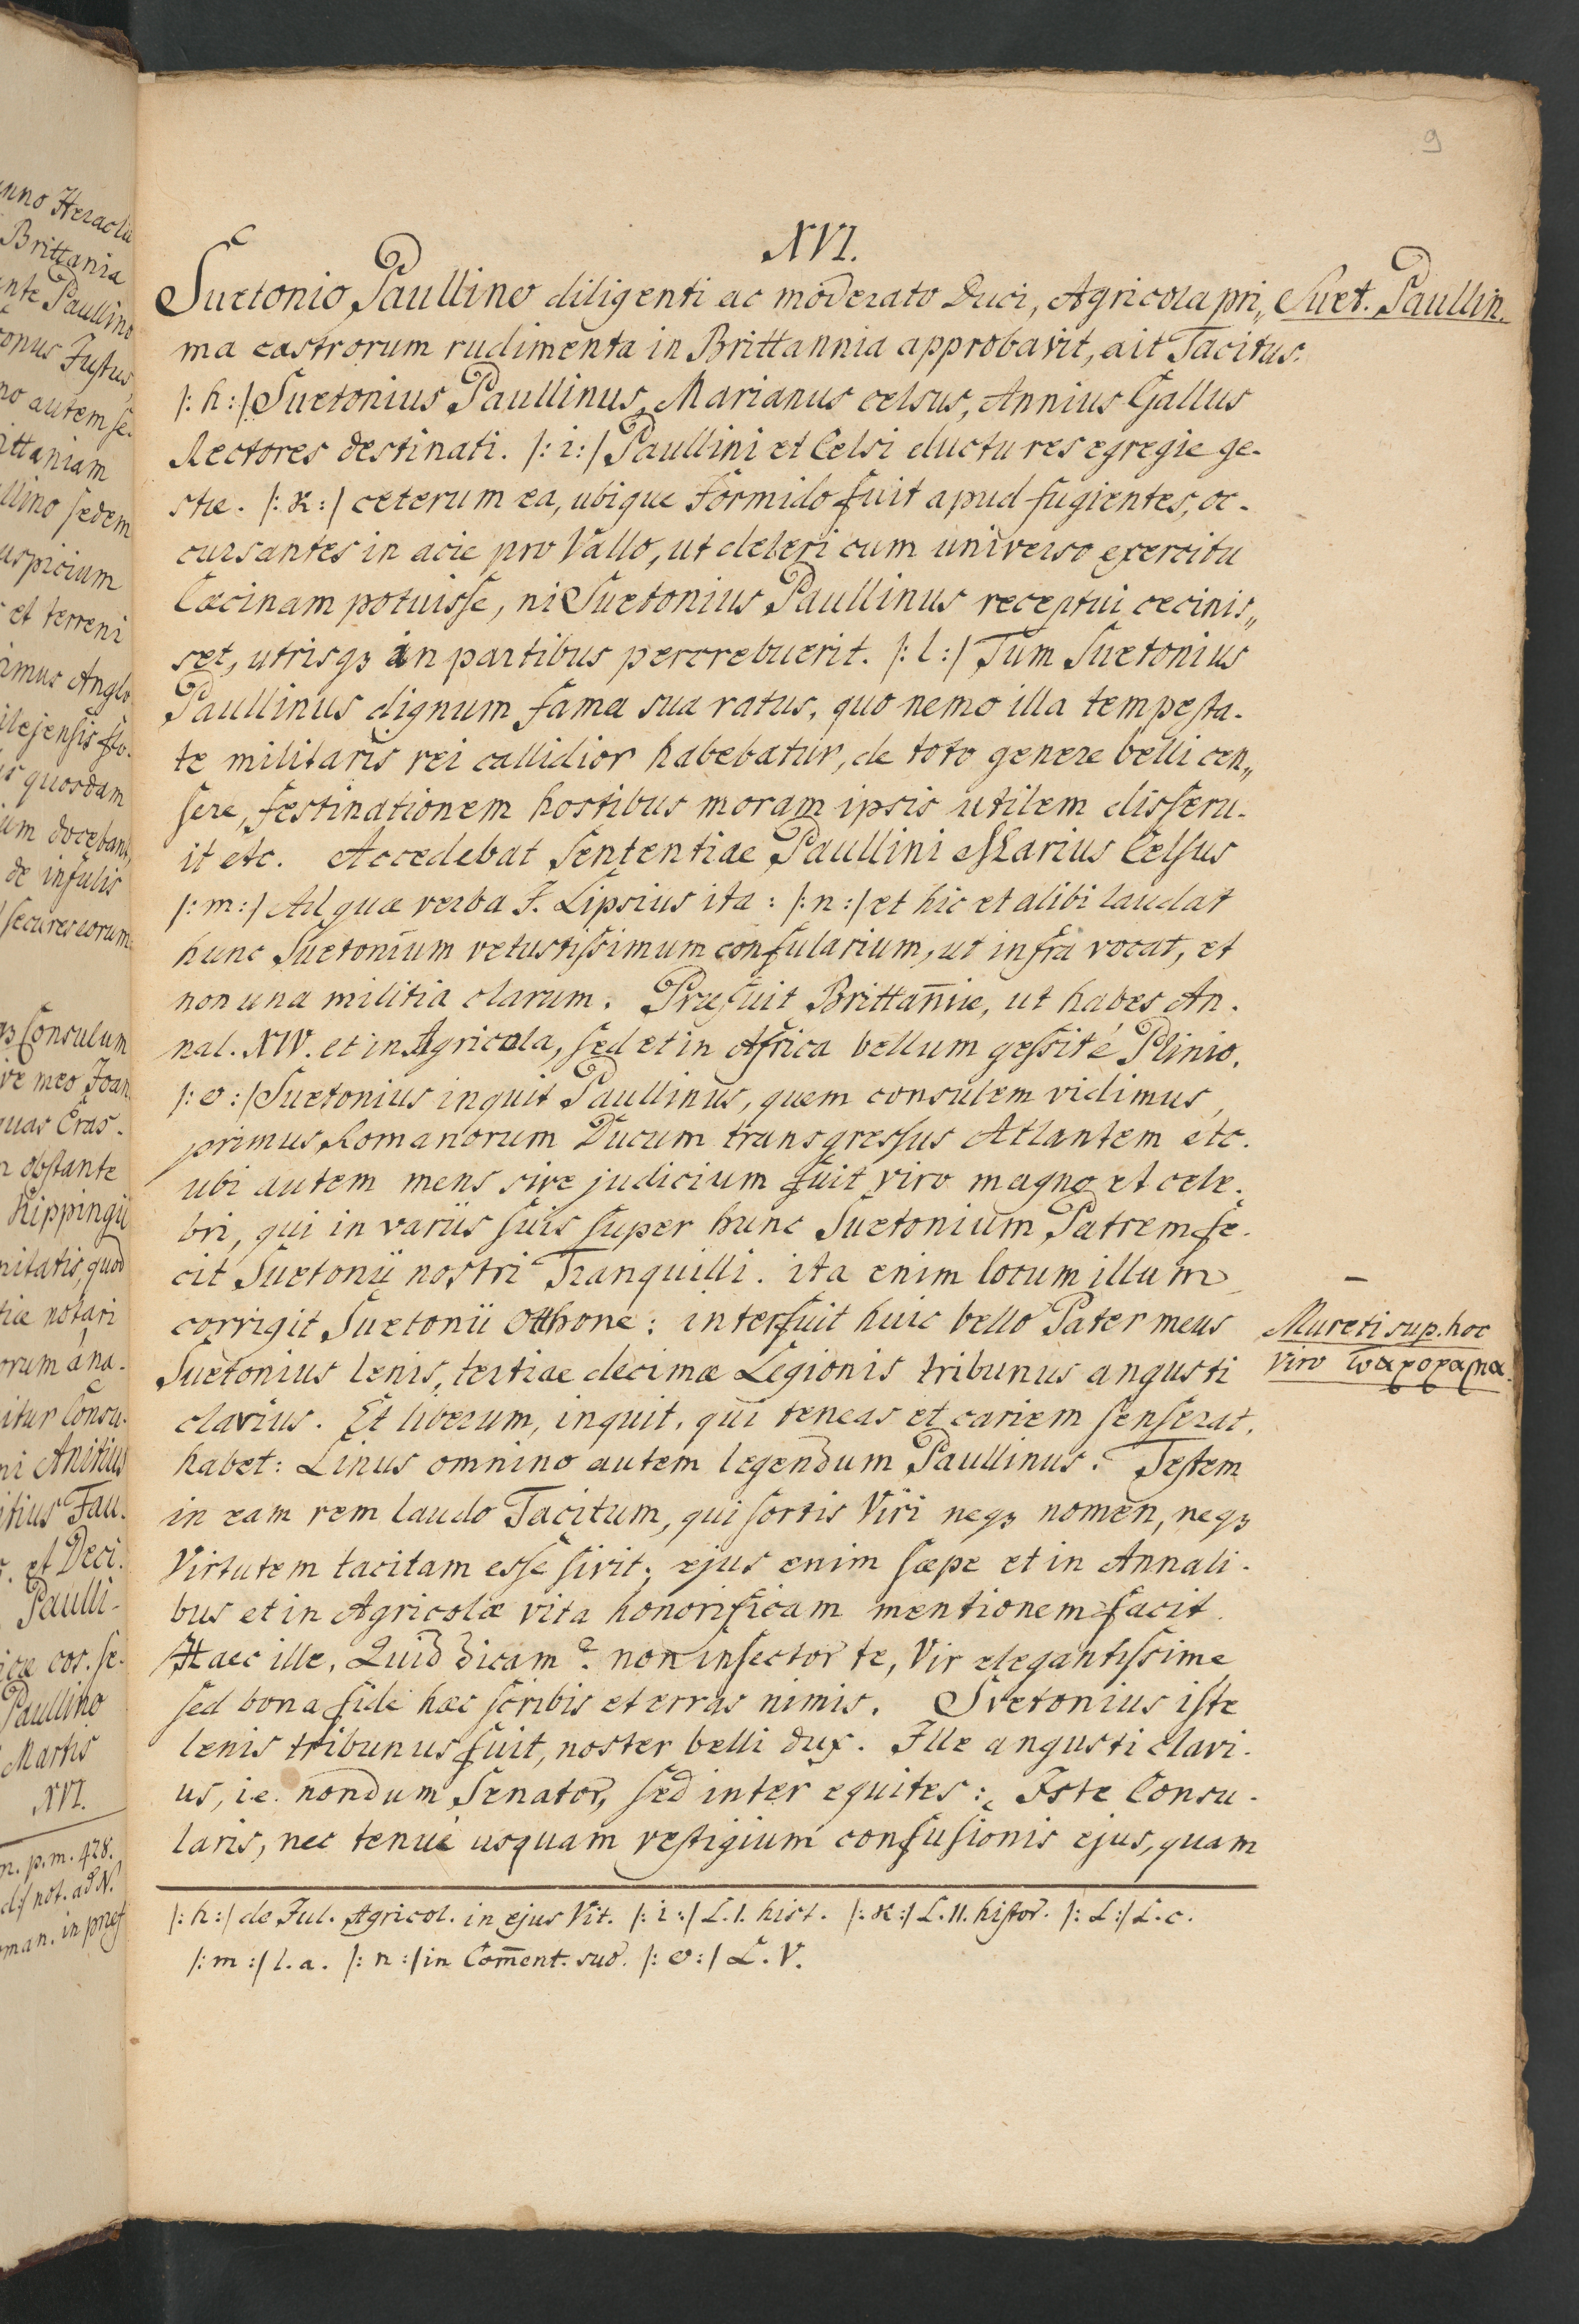 9
XVI.
Suetonio Paullino diligenti ac moderato Duci, Agricola pri„
Suet. Paullin.
ma castrorum rudimenta in Brittannia approbavit, ait Tacitus.
/: h :/ Suetonius Paullinus, Marianus celsus, Annius Gallus
Rectores destinati. /: i :/ Paullini et Celsi ductu res egregie ge-
stæ. /: K :/ ceterum ea, ubique formido fuit apud fugientes, oc-
cursantes in acie pro Vallo, ut deleri cum universo exercitu
Cæcinam potuisse, ni Suetonius Paullinus receptui cecinis„
set, utrisqꝫ in partibus percrebuerit. /: l :/ Tum Suetonius
Paullinus dignum fama sua ratus, quo nemo illa tempesta-
te militaris rei callidior habebatur, de toto genere belli cen„
sere, festinationem hostibus moram ipsis utilem disseru-
it etc. Accedebat Sententiae Paullini Marius Celsus
/: m :/ Ad quæ verba J. Lipsius ita : /: n :/ et hic et alibi laudat
hunc Suetonium vetustissimum consularium, ut infra vocat, et
non una militia clarum. Præfuit Brittan̄iæ, ut habes An-
nal. XIV. et in Agricola, sed et in Africa bellum gessit é Plinio.
/: o :/ Suetonius inquit Paullinus, quem consulem vidimus,
primus Romanorum Ducum transgressus Atlantem etc.
ubi autem mens sive judicium fuit viro magno et cele-
bri, qui in variis suis super hunc Suetonium Patrem fe-
cit Suetonij nostri Tranquilli. ita enim locum illum
corrigit Suetonii Othone : interfuit huic bello Pater meus
Mureti sup. hoc
Suetonius lenis, tertiae decimæ Legionis tribunus angusti
viro
clavius. Et liberum, inquit, qui teneas et cariem senserat,
habet : Linus omnino autem legendum Paullinus. Testem
in eam rem laudo Tacitum, qui fortis Viri neqꝫ nomen, neqꝫ
Virtutem tacitam esse sivit ; ejus enim sæpe et in Annali-
bus et in Agricolæ vita honorificam mentionem facit.
Haec ille. Quid dicam ? non insector te, Vir elegantissime
sed bona fide hæc scribis et erras nimis. Svetonius iste
lenis tribunus fuit, noster belli dux. Ille angusti clavi-
us, i.e. nondum Senator, sed inter equites : Iste Consu-
laris, nec tenue usquam vestigium confusionis ejus, quam
/: h :/ de Jul. Agricol. in ejus Vit. /: i :/ L. I. hist. /: K :/ L. II. histor. /: L :/ L. c.
/: m :/ l. a. /: n :/ in Com̄ent. suo. /: o :/ L. V.